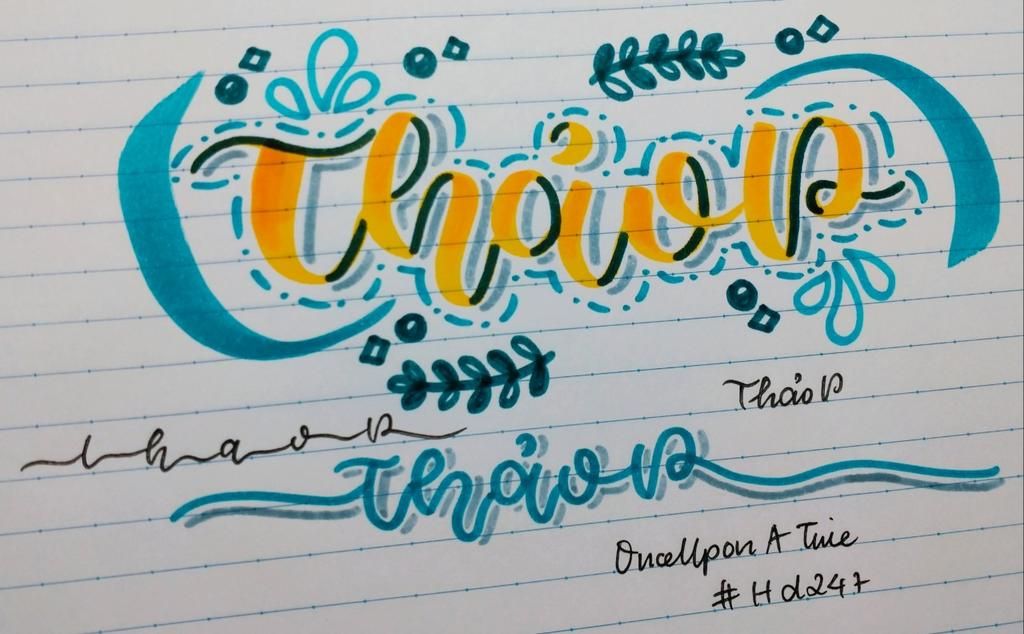 Thảo P
Thảo P
thaop
Thảo P
OnceUpon A Time
# Hd247